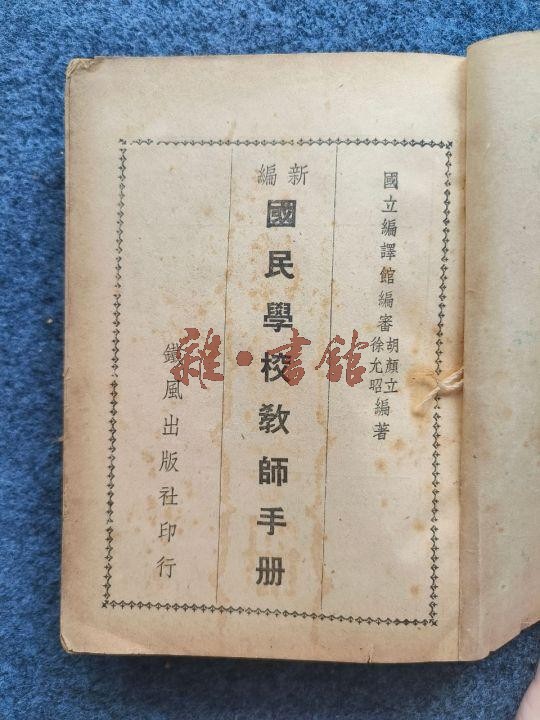 國立編譯館編審 胡顏立 徐允昭 編著
新編
國民學校教師手册
鐵風出版社印行
雜·書館